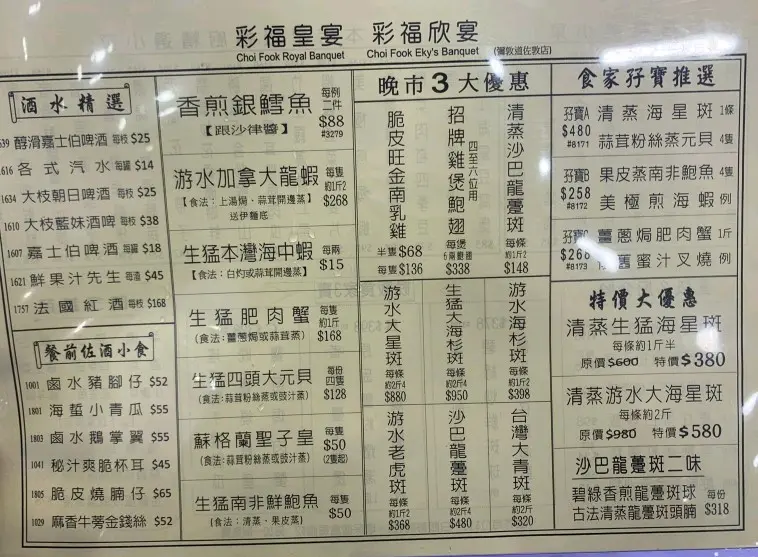 彩福皇宴 彩福欣宴
Choi Fook Royal Banquet Choi Fook Eky's Banquet (彌敦道佐敦店)
酒水精選
醇滑嘉士伯啤酒 每枝 $25
1616 各式汽水 每罐 $14
1634 大枝朝日啤酒 每枝 $25
1610 大枝藍妹啤酒 每枝 $38
1607 嘉士伯啤酒 每罐 $18
1621 鮮果汁先生 每渣 $45
1757 法國紅酒 每枝 $168
餐前佐酒小食
1001 鹵水豬腳仔 $52
1801 海蜇小青瓜 $55
1803 鹵水鵝掌翼 $55
1041 秘汁爽脆杯耳 $45
1805 脆皮燒腩仔 $65
1029 麻香牛蒡金錢絲 $52
香煎銀鱈魚 每例二件
【跟沙律醬】 $88
#3279
游水加拿大龍蝦 每隻約1斤2
【食法：上湯焗、蒜茸開邊蒸】 $268
送伊麵底
生猛本灣海中蝦 每兩
【食法：白灼或蒜茸開邊蒸】 $15
生猛肥肉蟹 每隻約1斤
(食法：薑蔥焗或蒜茸蒸) $168
生猛四頭大元貝 每份四隻
(食法：蒜茸粉絲蒸或豉汁蒸) $128
蘇格蘭聖子皇 每隻 $50
(食法：蒜茸粉絲蒸或豉汁蒸) (2隻起)
生猛南非鮮鮑魚 每隻
(食法：清蒸、果皮蒸) $50
晚市3大優惠
脆皮旺金南乳雞
半隻 $68
每隻 $136
招牌雞煲鮑翅
四至六位用
每煲
$338
清蒸沙巴龍躉斑
每條
約1斤2
$148
游水大星斑
每條
約2斤4
$880
生猛大海杉斑
每條
約2斤4
$950
游水海杉斑
每條
約1斤2
$398
游水老虎斑
每條
約1斤2
$368
沙巴龍躉斑
每條
約2斤4
$480
台灣大青斑
每條
約1斤2
$320
食家孖寶推選
孖寶A 清蒸海星斑 1條
$480
#8171 蒜茸粉絲蒸元貝 4隻
孖寶B 果皮蒸南非鮑魚 4隻
$258
#8172 美極煎海蝦 例
薑蔥焗肥肉蟹 1斤
#8173 蜜汁叉燒 例
特價大優惠
清蒸生猛海星斑
每條約1斤半
原價$600 特價$380
清蒸游水大海星斑
每條約2斤
原價$980 特價$580
沙巴龍躉斑二味
碧綠香煎龍躉斑球 每份
古法清蒸龍躉斑頭腩 $318